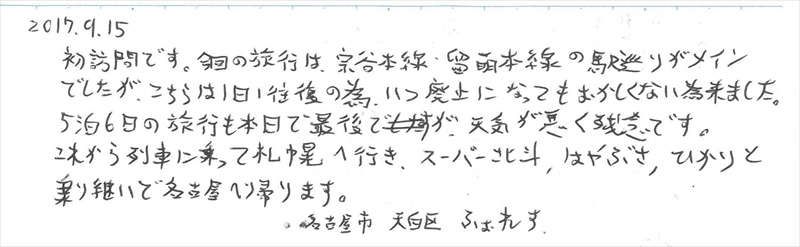 2017.9.15
初訪問です。今回の旅行は、宗谷本線・留萌本線の駅巡りがメイン
でしたが、こちらは1日1往後の為、いつ廃止になってもおかしくない為来ました。
5泊6日の旅行も本日で最後ですが、天気が悪く残念です。
これから列車に乗って札幌へ行き、スーパー北斗、はやぶさ、ひかりと
乗り継いで名古屋へ帰ります。
名古屋市 天白区 ふぉれす